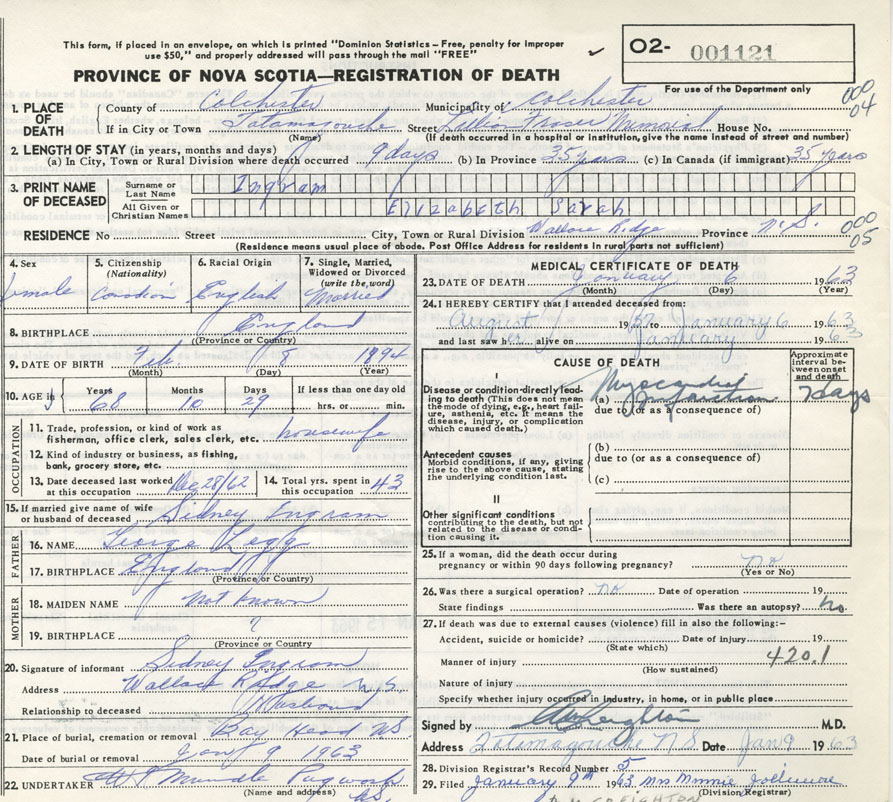 This form, if placed in an envelope, on which is printed "Dominion Statistics - Free, penalty for improper
use $50," and properly addressed will pass through the mail "FREE"
✓
O2- 001121
PROVINCE OF NOVA SCOTIA—REGISTRATION OF DEATH
For use of the Department only
000
04
1. PLACE OF DEATH
County of Colchester Municipality of Colchester
If in City or Town Tatamagouche Street Lillian Fraser Memorial House No.
(Name) (If death occurred in a hospital or institution, give the name instead of street and number)
2. LENGTH OF STAY (in years, months and days)
(a) In City, Town or Rural Division where death occurred 9 days (b) In Province 35 years (c) In Canada (if immigrant) 35 years
3. PRINT NAME OF DECEASED
Surname or Last Name Ingram
All Given or Christian Names Elizabeth Sarah
RESIDENCE No Street City, Town or Rural Division Wallace Ridge Province N.S.
000
05
(Residence means usual place of abode. Post Office Address for residents in rural parts not sufficient)
4. Sex female
5. Citizenship (Nationality) Canadian
6. Racial Origin English
7. Single, Married, Widowed or Divorced (write the word) Married
8. BIRTHPLACE England
(Province or Country)
9. DATE OF BIRTH Feb. 8 1894
(Month) (Day) (Year)
10. AGE in Years 68 Months 10 Days 29 If less than one day old hrs. or min.
OCCUPATION
11. Trade, profession, or kind of work as fisherman, office clerk, sales clerk, etc. housewife
12. Kind of industry or business, as fishing, bank, grocery store, etc.
13. Date deceased last worked at this occupation Dec 28/62
14. Total yrs. spent in this occupation 43
15. If married give name of wife or husband of deceased Sidney Ingram
FATHER
16. NAME George Legg
17. BIRTHPLACE England
(Province or Country)
MOTHER
18. MAIDEN NAME Not known
19. BIRTHPLACE ?
(Province or Country)
20. Signature of informant Sidney Ingram
Address Wallace Ridge N.S.
Relationship to deceased Husband
21. Place of burial, cremation or removal Bay Head NS
Date of burial or removal Jan 9 1963
22. UNDERTAKER Mundle Pugwash
(Name and address) N.S.
MEDICAL CERTIFICATE OF DEATH
23. DATE OF DEATH January 6 1963
(Month) (Day) (Year)
24. I HEREBY CERTIFY that I attended deceased from:
August 1957 to January 6 1963
and last saw her alive on January 1963
CAUSE OF DEATH
Approximate interval between onset and death
I
Disease or condition directly leading to death (This does not mean the mode of dying, e.g., heart failure, asthenia, etc. It means the disease, injury, or complication which caused death.)
(a) Myocardial Infarction 7 days
due to (or as a consequence of)
Antecedent causes
Morbid conditions, if any, giving rise to the above cause, stating the underlying condition last.
(b)
due to (or as a consequence of)
(c)
II
Other significant conditions
contributing to the death, but not related to the disease or condition causing it.
25. If a woman, did the death occur during pregnancy or within 90 days following pregnancy? no
(Yes or No)
26. Was there a surgical operation? no Date of operation 19
State findings Was there an autopsy? no
27. If death was due to external causes (violence) fill in also the following:-
Accident, suicide or homicide? Date of injury 19
(State which)
Manner of injury 420.1
(How sustained)
Nature of injury
Specify whether injury occurred in industry, in home, or in public place
Signed by Creighton M.D.
Address Tatamagouche N S Date Jan 9 1963
28. Division Registrar's Record Number 5
29. Filed January 9th 1963 Mrs Minnie Jollimore
(Division Registrar)
CREIGHTON